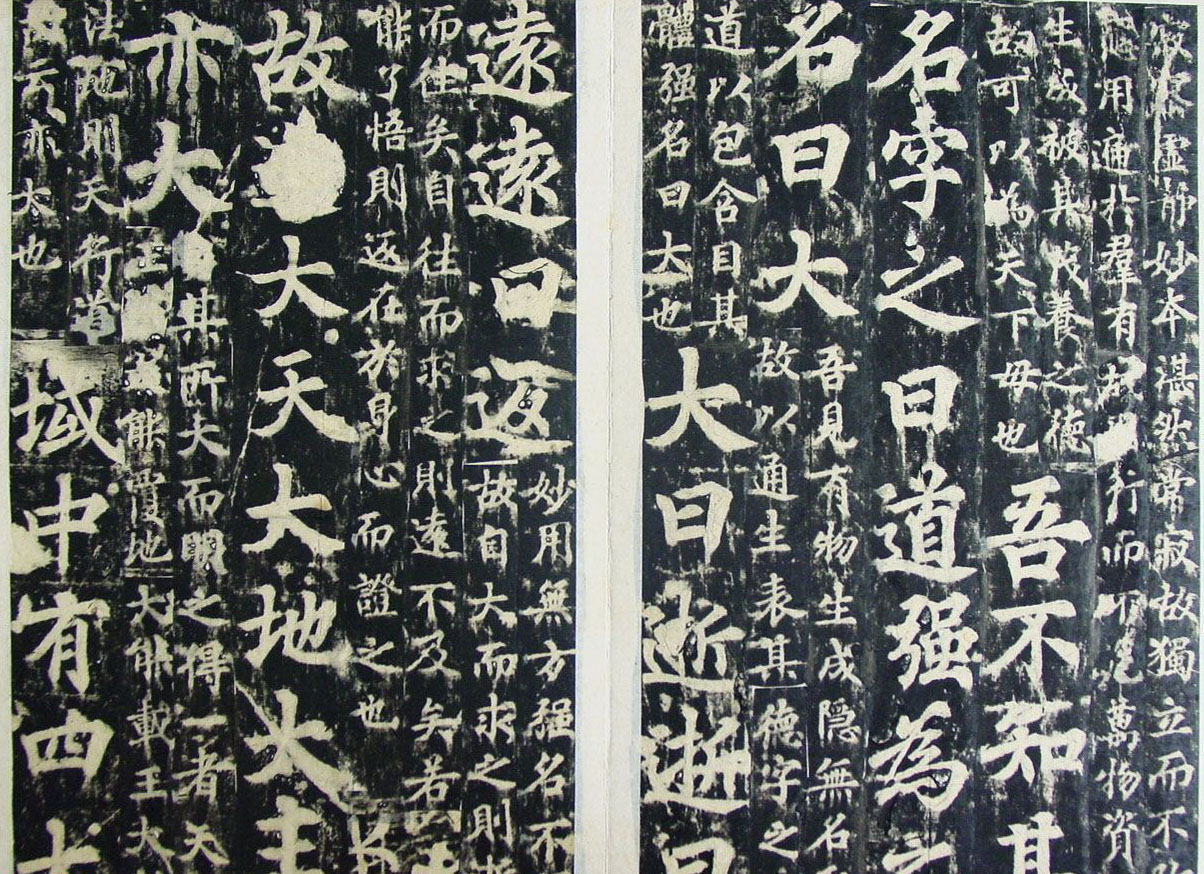 寂寥虛靜妙本湛然常寂故獨立而不
用遍於羣有行而不危萬物資
生成被其茂養之德
故可以為天下母也
吾不知其
名字之曰道强為
名曰大
吾見有物生成隱無名
故以通生表其德字之
道以包含目其
體强名曰大也
大曰逝逝曰
遠遠曰返
妙用無方强名不
故自大而求之則
而往矣自往而求之則遠不及矣若
能了悟則返在於身心而證之也
故大天大地大王
亦大
其所大而明之得一者天
能覆地大能載王大
法地則天行道
故云亦大也
域中有四大